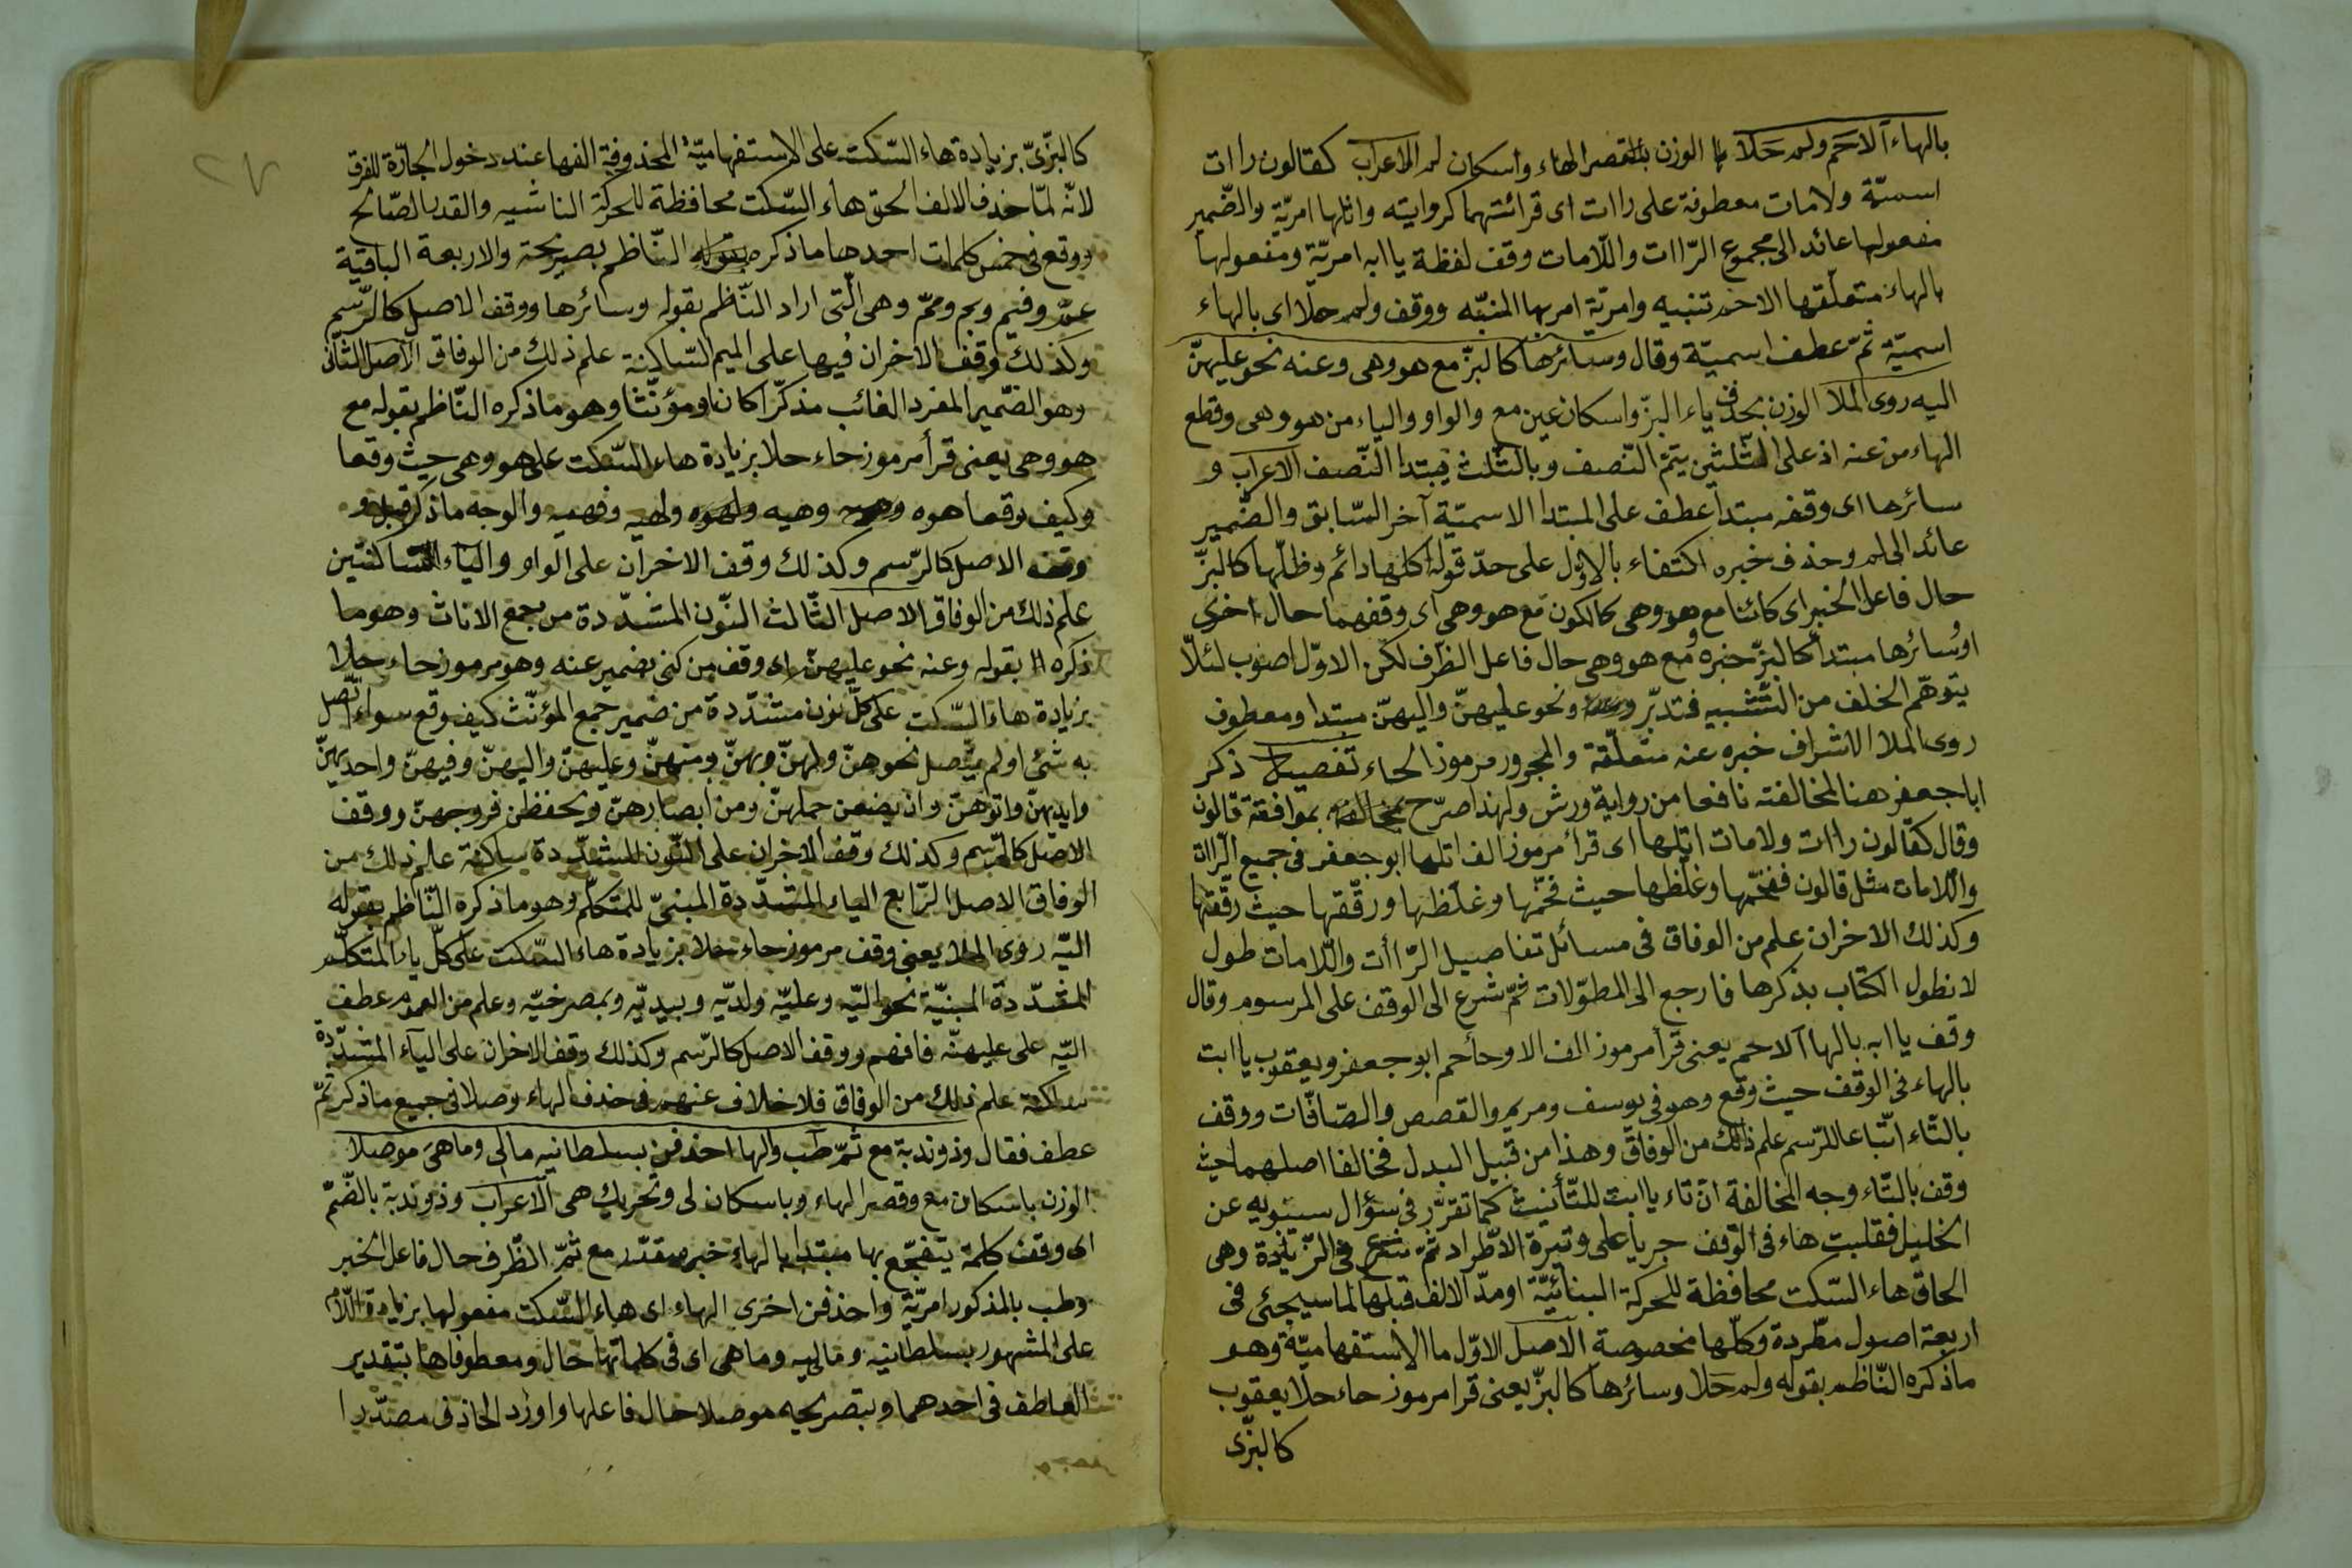 بالهاء الاحم ولم حلا الوزن بقصر الهاء واسكان لم الاعراب كقالون راات
اسميّة ولامات معطوفة على راات اى قرائتهما كروايته واتلها امريّة والضّمير
مفعولها عائد الى مجموع الرّاات واللّامات وقف لفظة يا ابه امريّة ومفعولها
بالهاء متعلّقها الاحم تنبيه وامريّة امر بها المنبّه ووقف ولم حلا اى بالهاء
اسميّة ثمّ عطف اسميّة وقال وسائرها كالبزّ مع هو وهى وعنه نحو عليهنّ
اليه روى الملا الوزن بحذف ياء البزّ واسكان عين مع والواو والياء من هو وهى وقطع
الهاء من عنه اذ على الثّلثين يتمّ النّصف وبالثّلث يبتدا النّصف الاعراب و
سائرها اى وقفه مبتدأ عطف على المبتدا الاسميّة آخر السّابق والضّمير
عائد الى لم وحذف خبره اكتفاء بالاوّل على حدّ قوله اكلها دائم وظلّها كالبزّ
حال فاعل الخبر اى كائنا مع هو وهى كالكون مع هو وهى اى وقفهما حال اخرى
او سائرها مبتدأ كالبزّ خبره ومع هو وهى حال فاعل الظّرف لكن الاوّل اصوب لئلّا
يتوهّم الخلف من التّشبيه فتدبّر ونحو عليهنّ واليهنّ مبتدا ومعطوف
روى الملا الاشراف خبره عنه متعلّقة والمجرور مرموز الحاء تفصيل ذكر
ابا جعفر هنا لمخالفته نافعا من رواية ورش ولهذا صرّح بموافقة قالون
وقال كقالون راات ولامات اتلها اى قرأ مرموز الف اتلها ابو جعفر فى جميع الرّاات
واللامات مثل قالون ففخّمها وغلّظها حيث فخّمها وغلّظها ورقّقها حيث رقّقها
وكذلك الاخران علم من الوفاق فى مسائل تفاصيل الرّاأت واللّامات طول
لا نطول الكتاب بذكرها فارجع الى المطوّلات ثمّ شرع الى الوقف على المرسوم وقال
وقف يا ابه بالها آلاحم يعنى قرأ مرموز الف الا وحأ حم ابو جعفر ويعقوب يا ابت
بالهاء فى الوقف حيث وقع وهو فى يوسف ومريم والقصص والصّافّات ووقف
بالتّاء اتّباعا للرّسم علم ذلك من الوفاق وهذا من قبيل البدل فخالفا اصلهما حيث
وقف بالتّاء وجه المخالفة انّ تاء يا ابت للتّأنيث كما تقرّر فى سؤال سيبويه عن
الخليل فقلبت هاء فى الوقف جريا على وتيرة الاطّراد ثمّ شرع فى الزّيادة وهى
الحاق هاء السّكت محافظة للحركة البنائيّة او مدّ الالف قبلها لما سيجئ فى
اربعة اصول مطّردة وكلّها مخصوصة الاصل الاوّل ما الاستفهاميّة وهو
ما ذكره النّاظم بقوله ولم حلا وسائرها كالبزّ يعنى قرا مرموز حاء حلا يعقوب
كالبزّى
كالبزّىّ بزيادة هاء السّكت على الاستفهاميّة المحذوفة الفها عند دخول الجارّة للفرق
لانّه لمّا حذف الالف الحق هاء السّكت محافظة للحركة
ووقع فى خمس كلمات احدها ما ذكره النّاظم بصريحه والاربعة الباقية
عمّ وفيم وبم وممّ وهى الّتى اراد النّاظم بقوله وسائرها ووقف الاصل كالرّسم
وكذلك وقف الاخران فيها على الميم السّاكنة علم ذلك من الوفاق الاصل الثّانى
وهو الضّمير المفرد الغائب مذكّرا كان او مؤنّثا وهو ما ذكره النّاظم بقوله مع
هو وهى يعنى قرأ مرموز حاء حلا بزيادة هاء السّكت على هو وهى حيث وقعا
وكيف وقعا هوه وهيه ولهوه ولهيه وفهيه والوجه ما ذكر قبل و
وقف الاصل كالرّسم وكذلك وقف الاخران على الواو والياء السّاكنتين
علم ذلك من الوفاق الاصل الثّالث النّون المشدّدة من جمع الاناث وهو ما
ذكره بقوله وعنه نحو عليهنّ اى وقف من كنى بضمير عنه وهو مرموز حاء حلا
بزيادة هاء السّكت على كلّ نون مشدّدة من ضمير جمع المؤنّث كيف وقع سواء اتّصل
به شئ او لم يتّصل نحو هنّ ولهنّ وبهنّ ومنهنّ وعليهنّ واليهنّ وفيهنّ واحديهنّ
وايديهنّ واتوهنّ وان يضعن حملهنّ ومن ابصارهنّ ويحفظن فروجهنّ ووقف
الاصل كالرّسم وكذلك وقف الاخران على النّون المشدّدة ساكنة علم ذلك من
الوفاق الاصل الرّابع الياء المشدّدة المبنىّ للمتكلّم وهو ما ذكره النّاظم بقوله
اليّه روى الملا يعنى وقف مرموز حاء حلا بزيادة هاء السّكت على كلّ ياء المتكلّم
المشدّدة المبنيّة نحو اليّه وعليّه ولديّه وبيديّه وبمصرخيّه وعلم من العموم عطف
اليّه على عليهنّه فافهم ووقف الاصل كالرّسم وكذلك وقف الاخران على الياء المشدّدة
ساكنة علم ذلك من الوفاق فلا خلاف عنهم فى حذف الهاء وصلا فى جميع ما ذكر ثمّ
عطف فقال وذو ندبة مع ثمّ طب والها احذفن بسلطانيه مالى وماهى موصلا
الوزن باسكان مع وقصر الهاء وباسكان لى وتحريك هى الاعراب وذو ندبة بالضّمّ
اى وقف كلمة يتفجّع بها مبتدا بالهاء خبره مقدّر مع ثمّ الظّرف حال فاعل الخبر
وطب بالمذكور امريّة واحذفن اخرى الهاء اى هاء السّكت مفعولها بزيادة اللّام
على المشهور بسلطانيه وماليه وماهى اى فى كلماتها حال ومعطوفاها بتقدير
العاطف فى احدهما وبتصريحه موصلا حال فاعلها واورد الحاذف مصدّرا